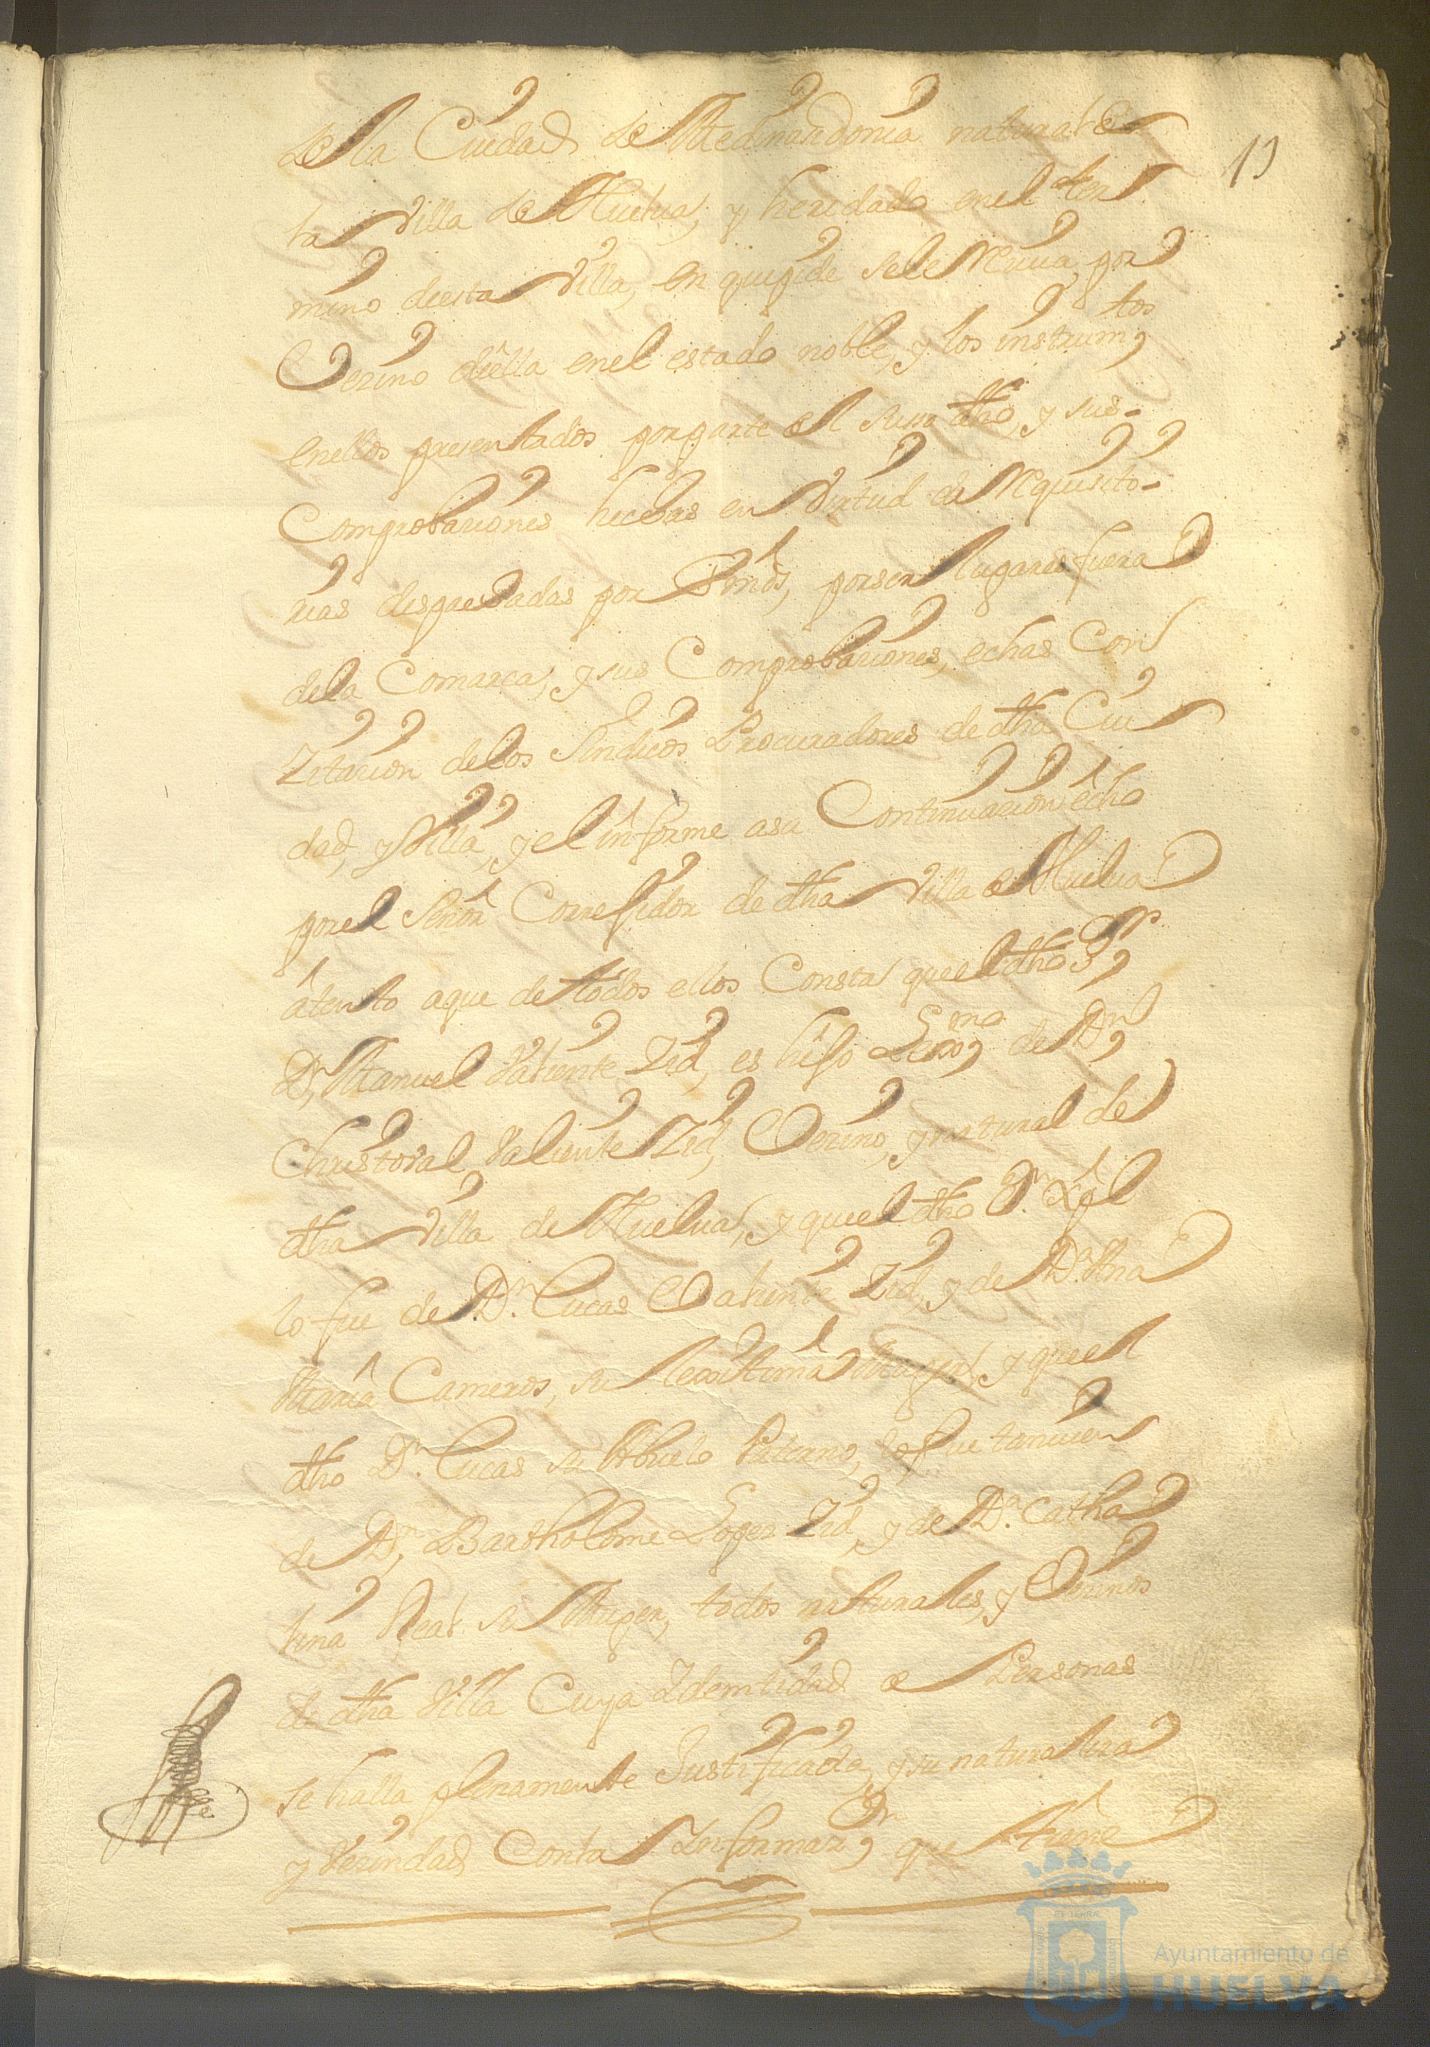 de la Ciudad de Medinasidonia natural de
la Villa de Huelva, y heredado en el ter
mino de esta Villa, en que pide se le reciua por
Vezino de ella en el estado noble, y los instrum.tos
en ellos presentados por parte del suso dho, y sus
Comprobaciones hechas en Virtud de requisito
rias despachadas por Sus mds, por ser lugares fuera
de la Comarca, y sus Comprobaciones, echas Con
Zitacion de los Sindicos Procuradores de dha Ciu
dad, y Villa, y el informe a su Continuacion echo
por el Señor Corregidor de dha Villa de Huelva
atento a que de todos ellos Consta que el dho Sr
Dn Manuel Valiente Zid, es hijo Lexmo de Dn
Christoval Valiente Zid, Vezino, y natural de
dha Villa de Huelva, y que el dho Dn Xptl
lo fue de Dn Lucas Valiente Zid, y de Da Ana
Maria Cameros, su lexitima Muger, y que el
dho Dn Lucas su Abuelo Paterno, lo fue tanuien
de Dn Bartholome Lopez Zid, y de Da Catha
lina Real su Muger, todos naturales, y Vezinos
de dha Villa Cuya Identidad de Personas
se halla plenamente Justificada, y su naturaleza
y Vezindad Con la Informazn que tiene
Ayuntamiento de
HUELVA